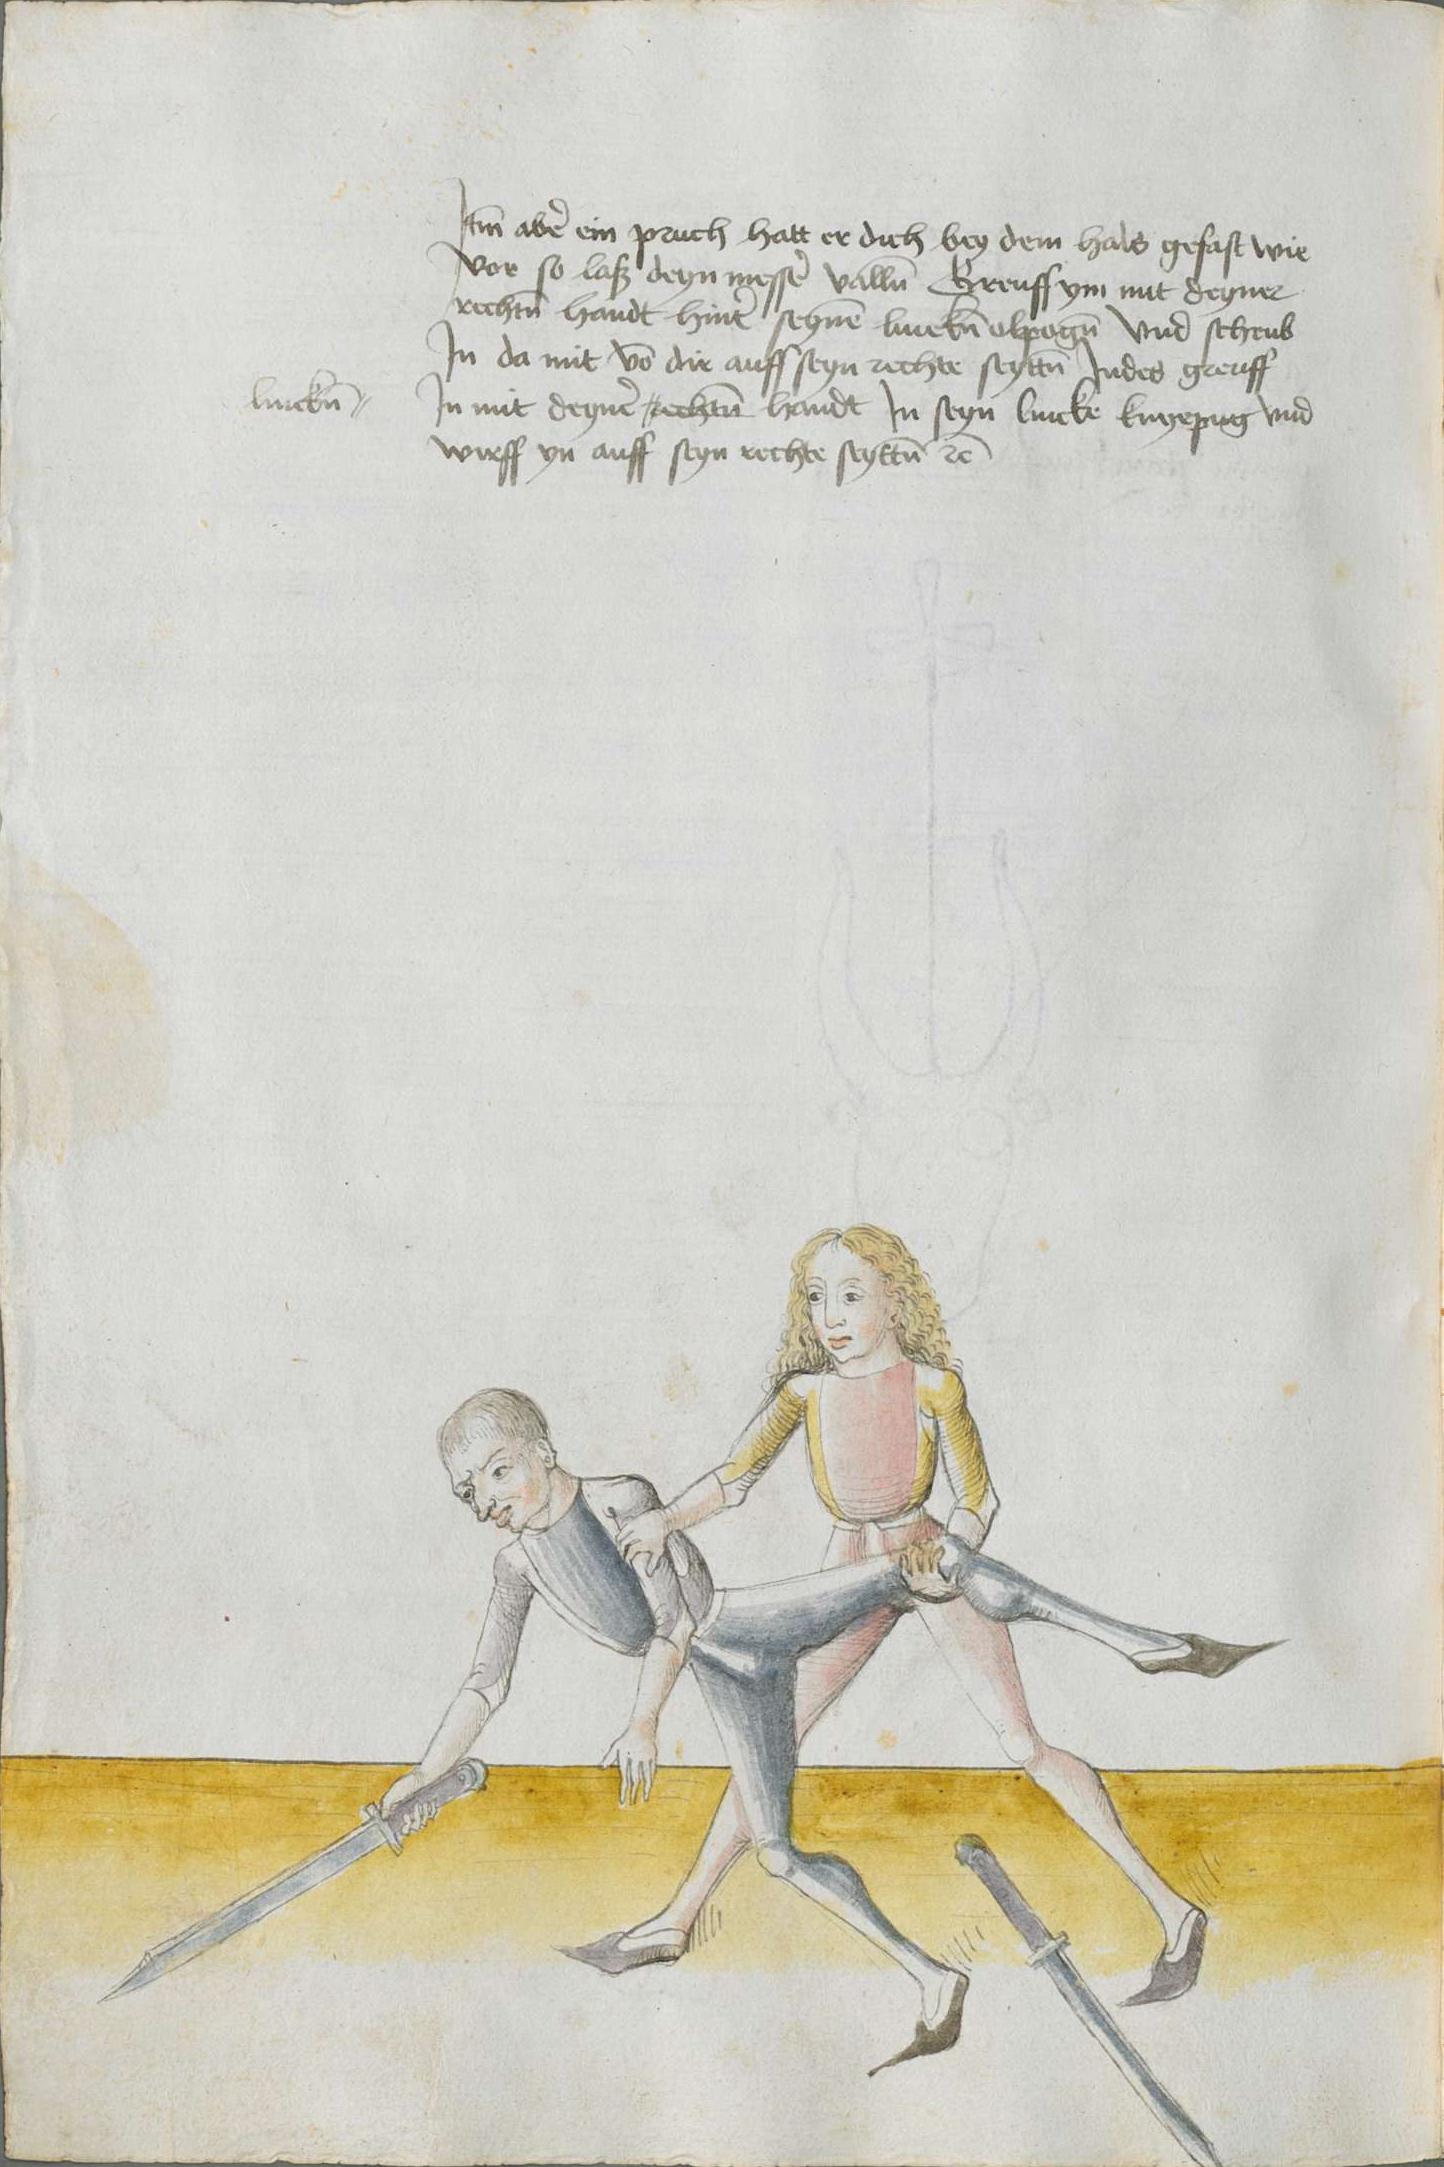 Itm̄ aber̄ ein pruch hatt er dich bey dem hals gefast wie
vor so laß deyn messer̄ valln̄ Greuff ym mit deyner
rechtn̄ handt hinter̄ seynē linckn̄ elpogn̄ Und scheub
In da mit vō dir auff seyn rechte seyttn̄ Indes greuff
linckn̄ //
In mit deyner̄ rechtn̄ handt In seyn lincke knyepug und
wirff yn auff seyn rechte seyttn̄ ꝛc̄